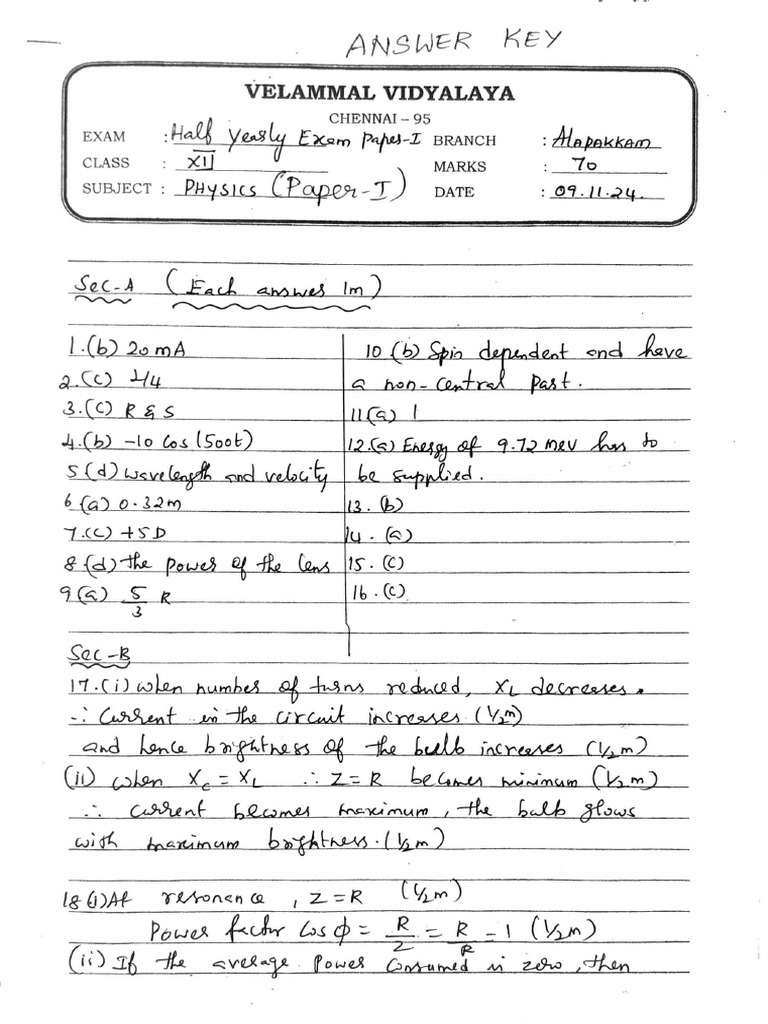 ANSWER KEY
VELAMMAL VIDYALAYA
CHENNAI – 95
EXAM : Half Yearly Exam Paper-I BRANCH : Alapakkam
CLASS : XII MARKS : 70
SUBJECT : PHYSICS (Paper-I) DATE : 09.11.24.
Sec-A (Each answer 1m)
1.(b) 20 mA
2.(c) 1/4
3.(c) R & S
4.(b) -10 Cos(500t)
5(d) wavelength and velocity
6(a) 0.32m
7.(c) +5D
8(d) the power of the lens
9(a) 5/3 R
10(b) Spin dependent and have
a non-central part.
11(a) 1
12.(a) Energy of 9.72 MeV has to
be supplied.
13. (b)
14. (a)
15. (c)
16. (c)
Sec-B
17.(i) when number of turns reduced, XL decreases.
∴ Current in the circuit increases (1/2m)
and hence brightness of the bulb increases (1/2m)
(ii) when Xc = XL ∴ Z=R becomes minimum (1/2m)
∴ current becomes maximum, the bulb glows
with maximum brightness. (1/2m)
18(i) At resonance, Z=R (1/2m)
Power factor Cos ϕ = R/Z = R/R = 1 (1/2m)
(ii) If the average power consumed is zero, then